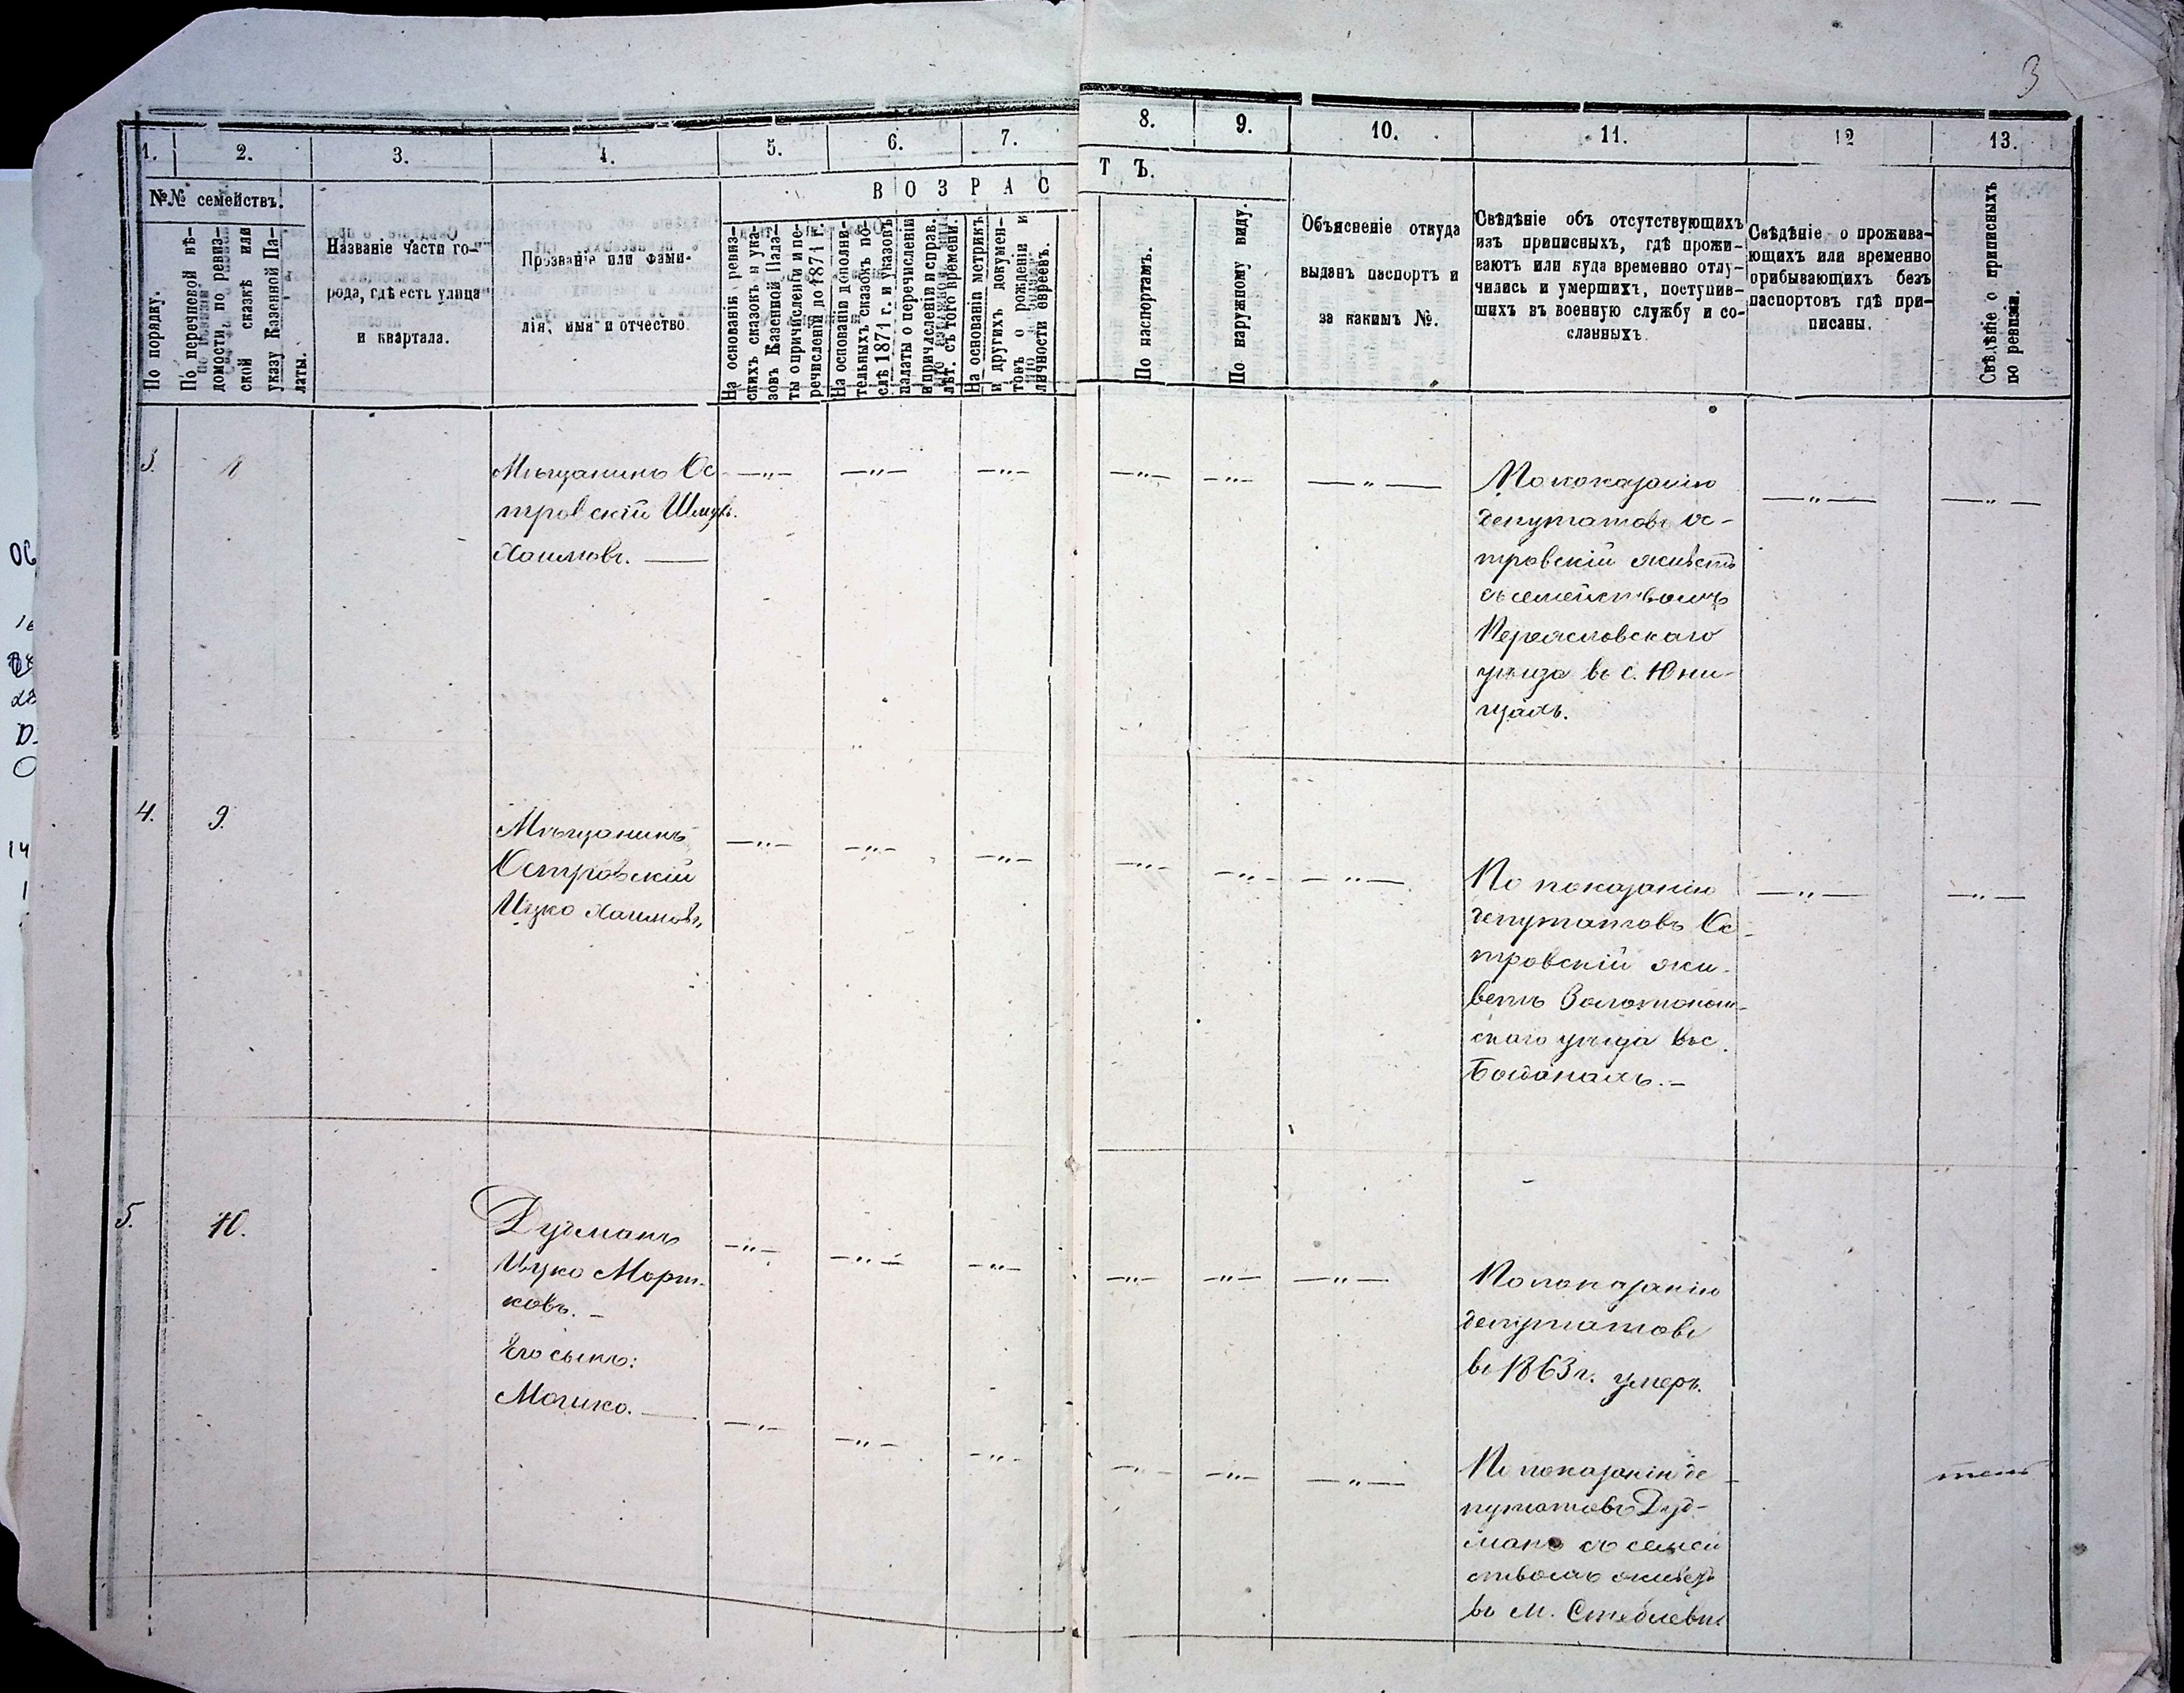 3
1. 2. 3. 4. 5. 6. 7. 8. 9. 10. 11. 12 13.
№№ семействъ.
По порядку.
По перечневой вѣ-
домости, по ревиз-
ской сказкѣ или
указу Казенной Па-
латы.
Названіе части го-
рода, гдѣ есть улица
и квартала.
Прозваніе или фами-
лія, имя и отчество.
ВОЗРАСТЪ.
На основаніи ревиз-
скихъ сказокъ и ука-
зовъ Казенной Пала-
ты о причисленіи и пе-
речисленіи до 1871 г.
На основаніи дополни-
тельныхъ сказокъ по-
слѣ 1871 г. и указовъ
палаты о перечисленіи
и причисленіи и справ.
лѣт. съ того времени.
На основаніи метрикъ
и другихъ докумен-
товъ о рожденіи и
личности евреевъ.
По паспортамъ.
По наружному виду.
Объясненіе откуда
выданъ паспортъ и
за какимъ №.
Свѣдѣніе объ отсутствующихъ
изъ приписныхъ, гдѣ прожи-
ваютъ или куда временно отлу-
чились и умершихъ, поступив-
шихъ въ военную службу и со-
сланныхъ.
Свѣдѣніе о прожива-
ющихъ или временно
прибывающихъ безъ
паспортовъ гдѣ при-
писаны.
Свѣдѣніе о приписныхъ
по ревизіи.
3.
Мѣщанинъ Ос-
тровскій Шмуль
Хаимовъ. —
—"— —"— —"— —"— —"— —"—
По показанію
депутатовъ Ос-
тровскій живетъ
съ семействомъ
Переясловскаго
уѣзда въ с. Юни-
цахъ.
—"— —"—
4. 9.
Мѣщанинъ
Островскій
Ицко Хаимовъ,
—"— —"— —"— —"— —"— —"—
По показанію
депутатовъ Ос-
тровскій жи-
ветъ Золотонош-
скаго уѣзда въ с.
Богданахъ.—
—"— —"—
5. 10.
Дудманъ
Ицко Морт-
ковъ. —
Его сынъ:
Мошко. —
—"— —"— —"— —"— —"— —"—
По показанію
депутатовъ
въ 1863 г. умеръ.
—"— —"— —"— —"— —"— —"—
По показанію де-
путатовъ Дуд-
манъ съ семей
ствомъ живетъ
въ м. Стеблевѣ